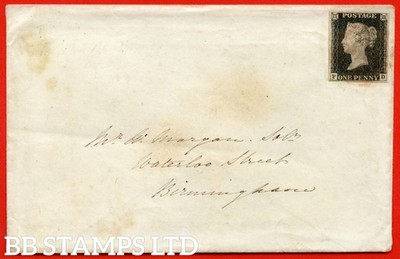 POSTAGE
ONE PENNY
Mr. W. Morgan. Solr.
Waterloo Street
Birmingham
BB STAMPS LTD